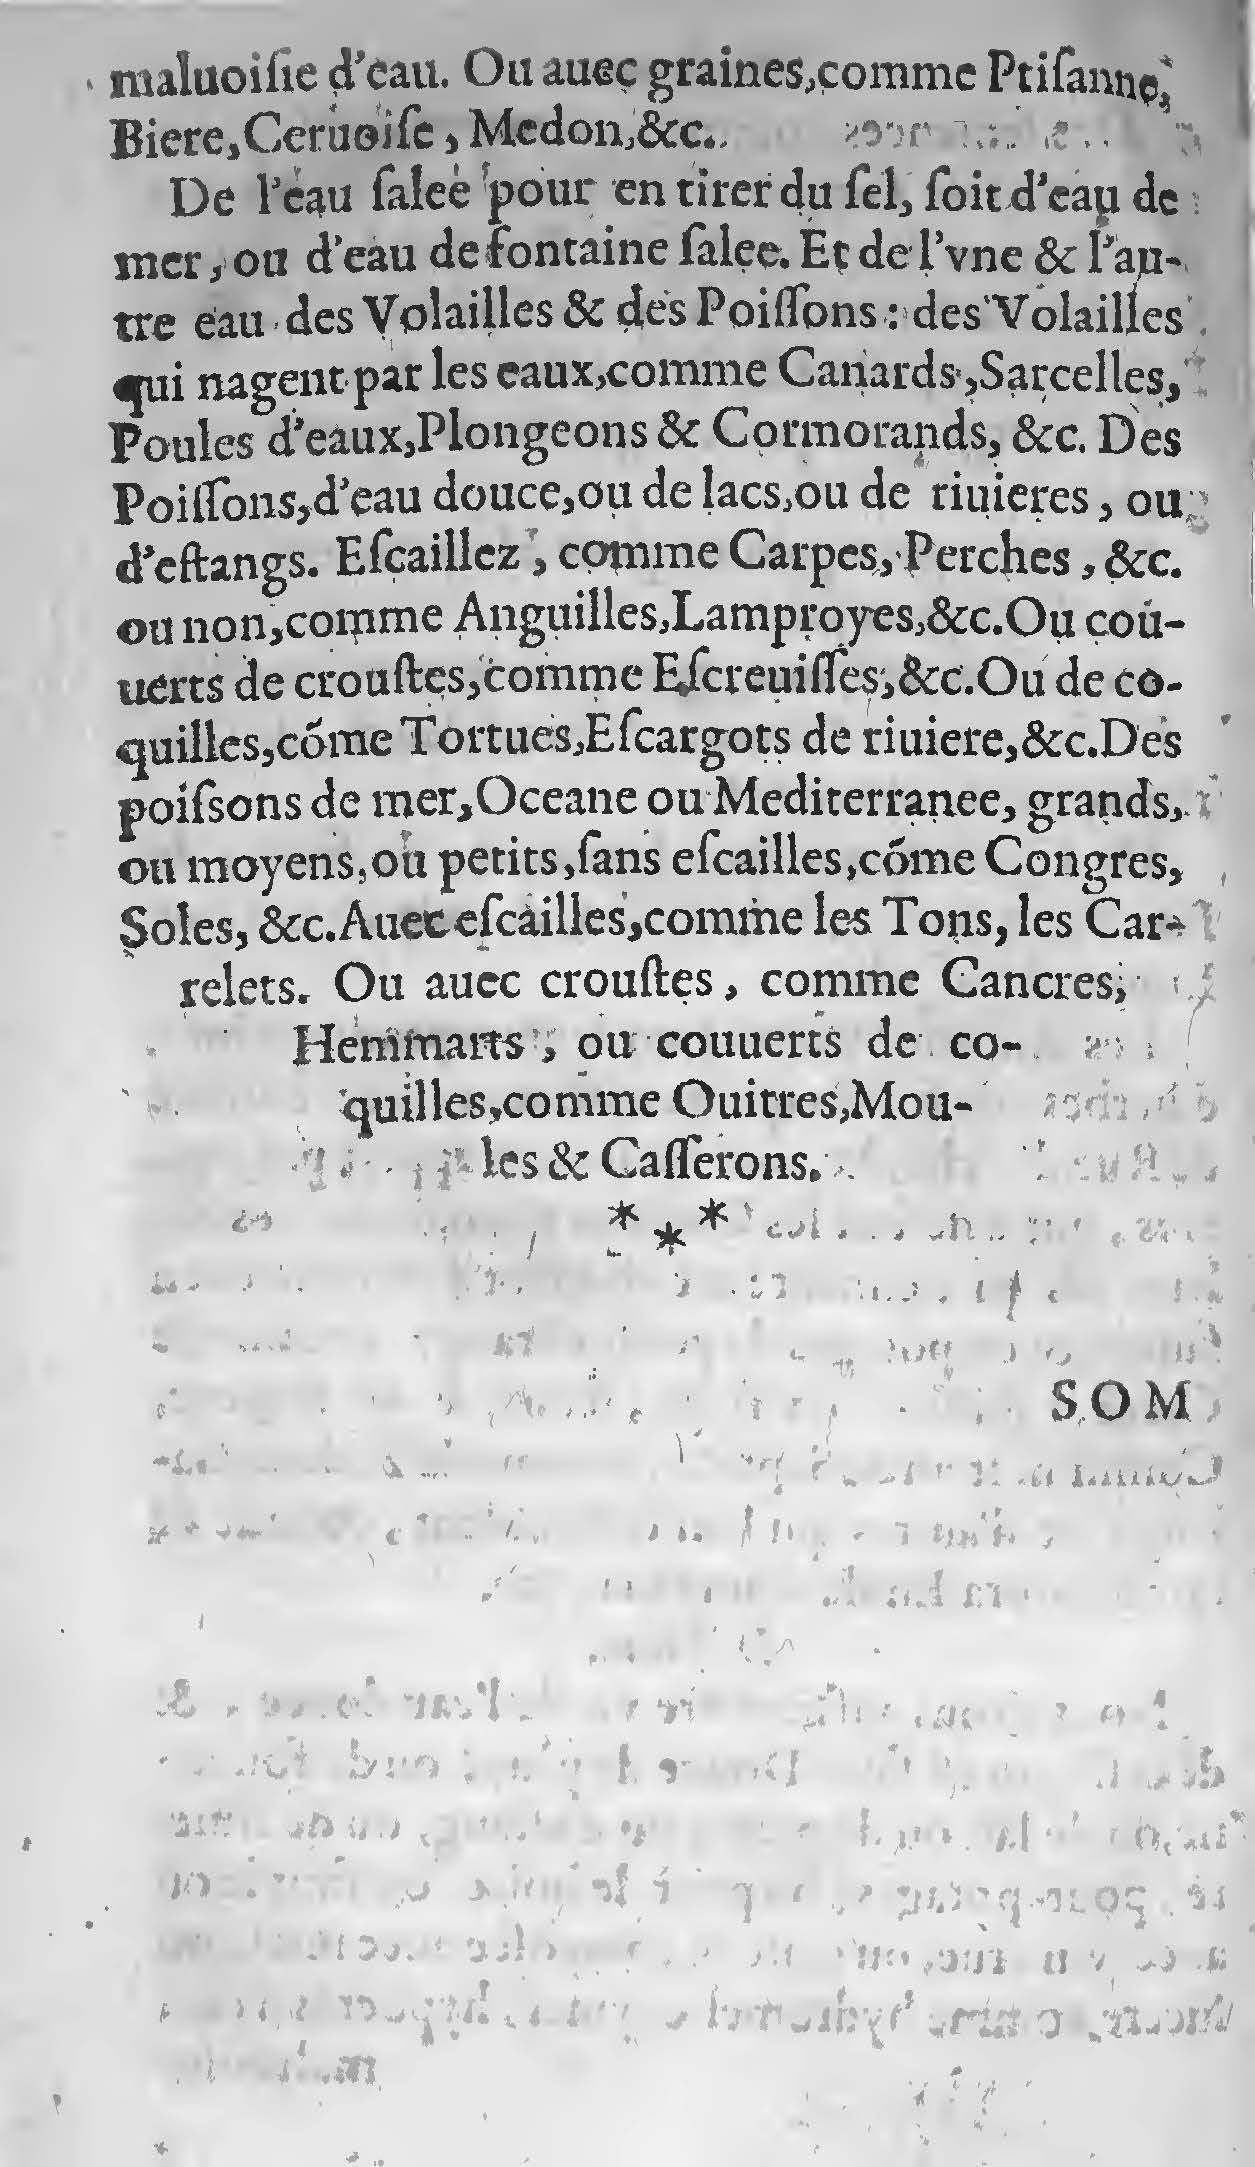 maluoiſie d'eau. Ou auec graines, comme Ptiſanne,
Biere, Ceruoiſe, Medon, &c.
De l'eau ſaleé pour en tirer du ſel, ſoit d'eau de
mer, ou d'eau de fontaine ſalee. Et de l'vne & l'au-
tre eau des Volailles & des Poiſſons: des Volailles
qui nagent par les eaux, comme Canards, Sarcelles,
Poules d'eaux, Plongeons & Cormorands, &c. Des
Poiſſons, d'eau douce, ou de lacs, ou de riuieres, ou
d'eſtangs. Eſcaillez, comme Carpes, Perches, &c.
ou non, comme Anguilles, Lamproyes, &c. Ou cou-
uerts de crouſtes, comme Eſcreuiſſes, &c. Ou de co-
quilles, cõme Tortues, Eſcargots de riuiere, &c. Des
poiſsons de mer, Oceane ou Mediterranee, grands,
ou moyens, ou petits, ſans eſcailles, cõme Congres,
Soles, &c. Auec eſcailles, comme les Tons, les Car-
relets. Ou auec crouſtes, comme Cancres,
Hemmarts, ou couuerts de co-
quilles, comme Ouitres, Mou-
les & Caſſerons.
* * *
SOM